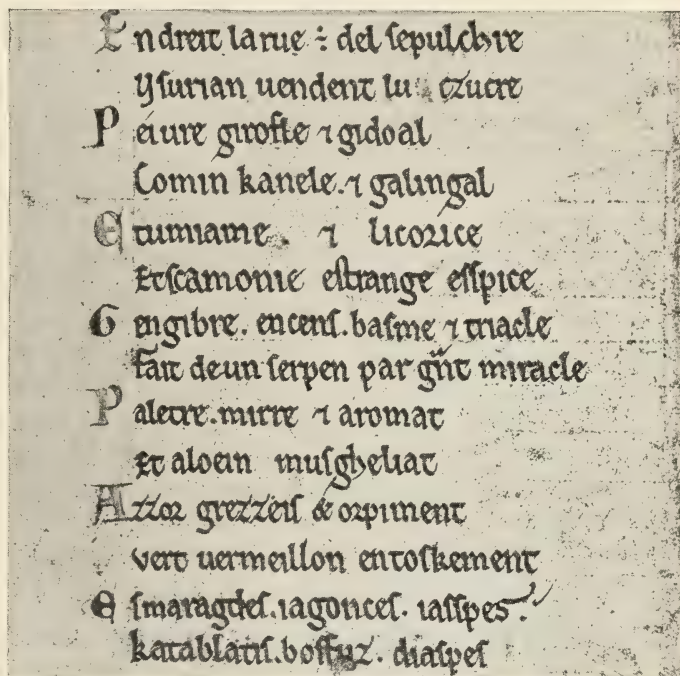 En dreit la rue : del sepulchre
ysurian uendent lu czucre
Peiure girofle ⁊ gidoal
Comin kanele.⁊ galingal
Etimiame. ⁊ licorice
Et scamonie estrange esspice
Gengibre. encens. basme ⁊ triacle
fait de un serpen par gñt miracle
Paletre.mirre ⁊ aromat
Et aloein musgheliat
Azzor grezzeis & orpiment
vert uermeillon entoskement
Esmaragdes.iagonces. iasspes.
katablatis.boffuz. diaspes